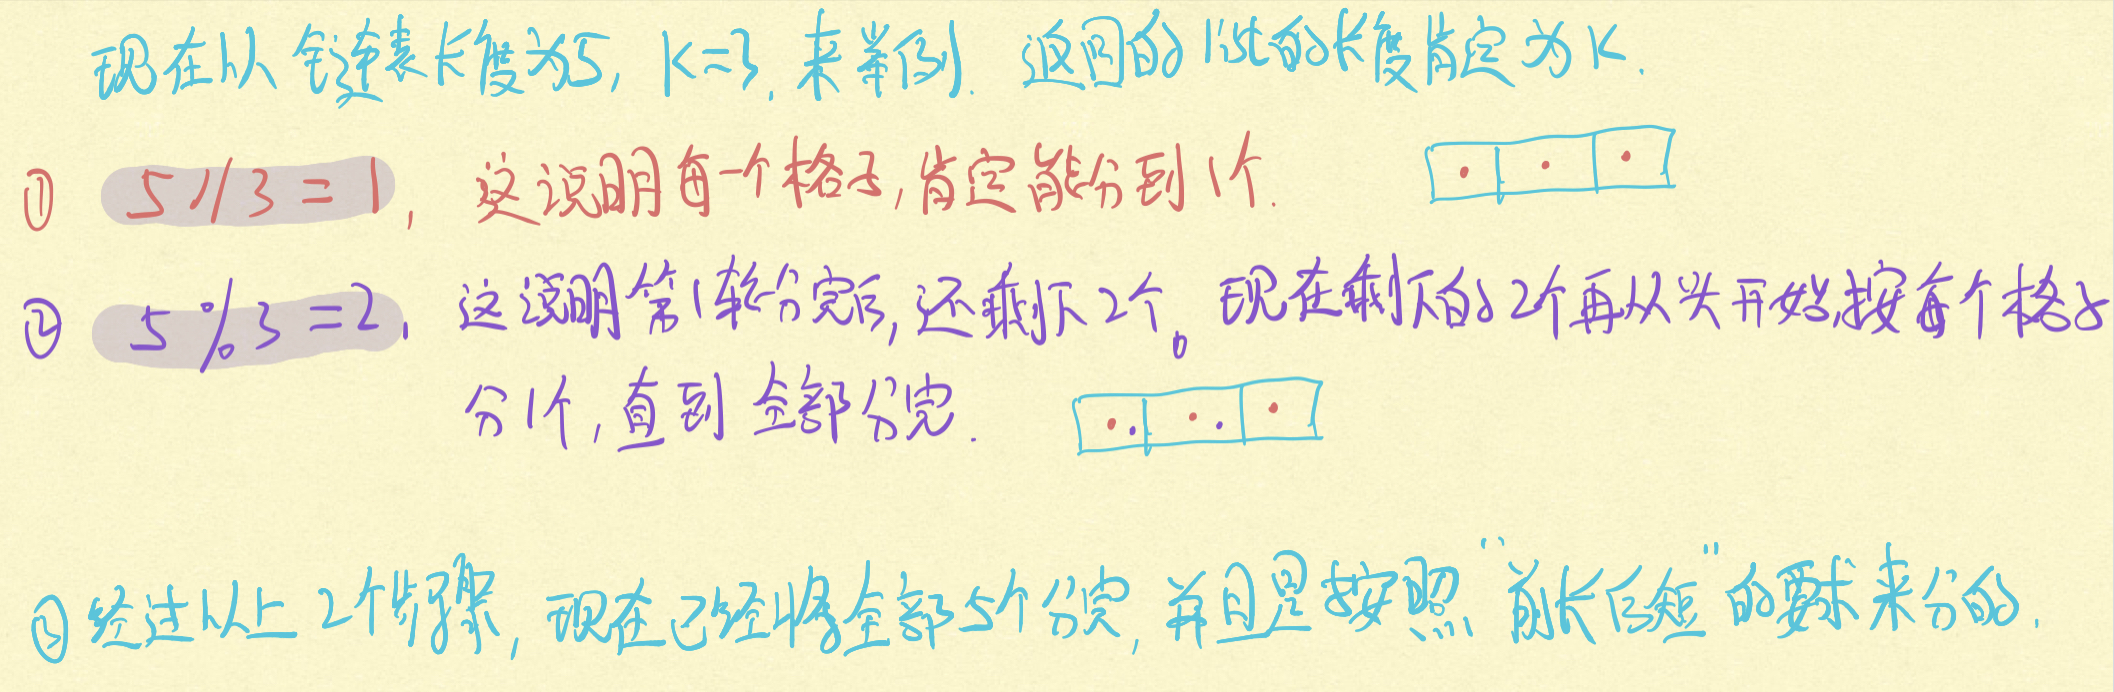 现在以链表长度为5, K=3, 来举例. 返回的list的长度肯定为K.
① 5//3=1, 这说明每一个格子, 肯定能分到1个.
② 5%3=2, 这说明第1轮分完后, 还剩下2个。现在剩下的2个再从头开始, 按每个格子
分1个, 直到全部分完.
③ 经过以上2个步骤, 现在已经将全部5个分完, 并且是按照"前长后短"的要求来分的.